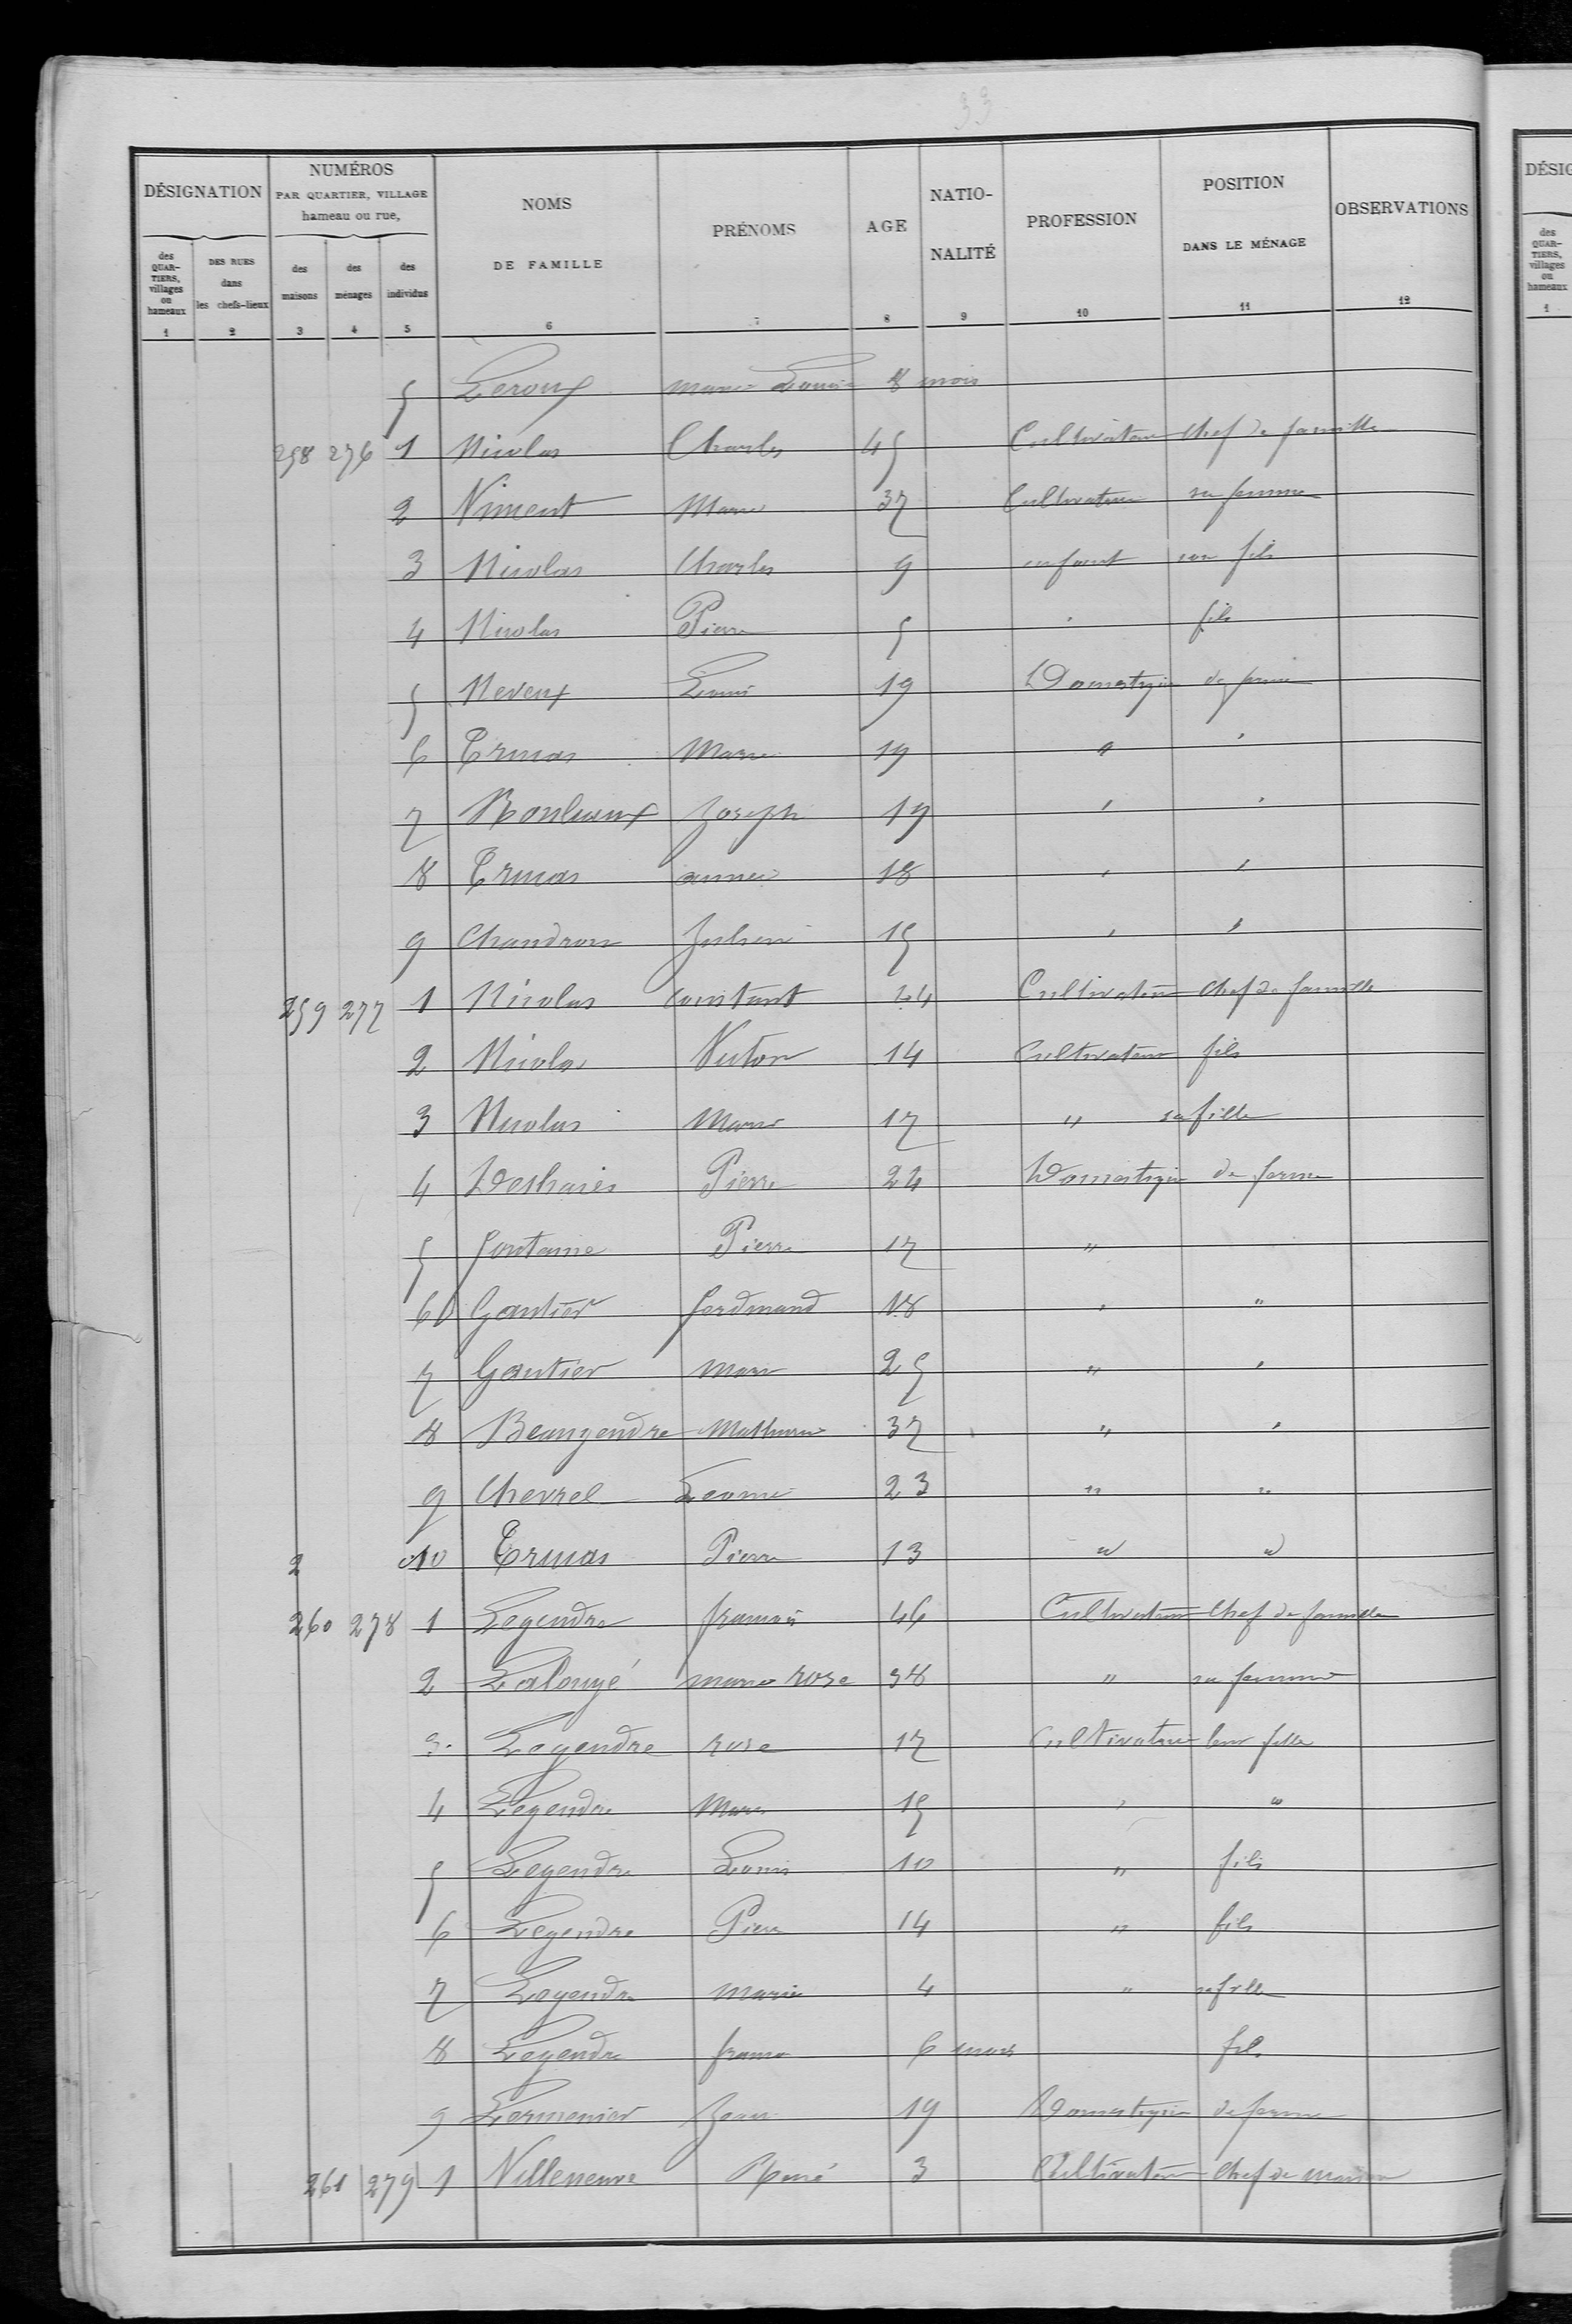 33
DÉSIGNATION NUMÉROS PAR QUARTIER, VILLAGE hameau ou rue, NOMS DE FAMILLE PRÉNOMS AGE NATIO-NALITÉ PROFESSION POSITION DANS LE MÉNAGE OBSERVATIONS
des QUAR-TIERS, villages ou hameaux DES RUES dans les chefs-lieux des maisons des ménages des individus
1 2 3 4 5 6 7 8 9 10 11 12
5 Leroux marie Louise 8 mois
258 276 1 Nicolas Charles 45 Cultivateur Chef de famille
2 Niment Marie 37 Cultivatrice sa femme
3 Nicolas Charles 9 enfant son fils
4 Nicolas Pierre 5 " fils
5 Neveux Louis 19 Domestique de ferme
6 Ermas Marie 19 " "
7 Joseph 19 " "
8 Ermas anne 18 " "
9 Chandron Julien 15 " "
259 277 1 Nicolas constant 44 Cultivateur chef de famille
2 Nicolas Victor 14 Cultivateur fils
3 Nicolas Marie 17 " sa fille
4 Deshaies Pierre 24 Domestique de ferme
5 fontaine Pierre 17 "
6 Gautier ferdinand 18 " "
7 Gautier marie 25 " "
8 Beaugendre Mathurin 37 " "
9 Chevrel Leonie 23 " "
2 10 Ermas Pierre 13 " "
260 278 1 Legendre francois 46 Cultivateur Chef de famille
2 Lalouyé marie rose 38 " sa femme
3 Legendre rose 17 Cultivatrice leur fille
4 Legendre Marie 15 " "
5 Legendre Louis 10 " fils
6 Legendre Pierre 14 " fils
7 Legendre marie 4 " sa fille
8 Legendre 6 mois fils
9 Lormenier Jean 19 Domestique de ferme
261 279 1 Villeneuve René 3 Cultivateur Chef de maison
DÉSIG
des QUAR-TIERS, villages ou hameaux
1